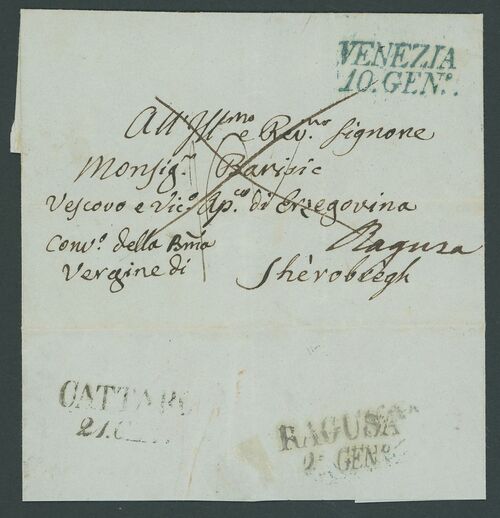 VENEZIA
10. GEN.º.
All' Ill.mo e Rev.mo Signore
Monsig.r Barisic
Vescovo e Vic.o Ap.co di Erzegovina
Ragusa
Conv.o della Bma
Vergine di Shèroblegh
CATTARO
21. GEN
RAGUSA
GEN.º